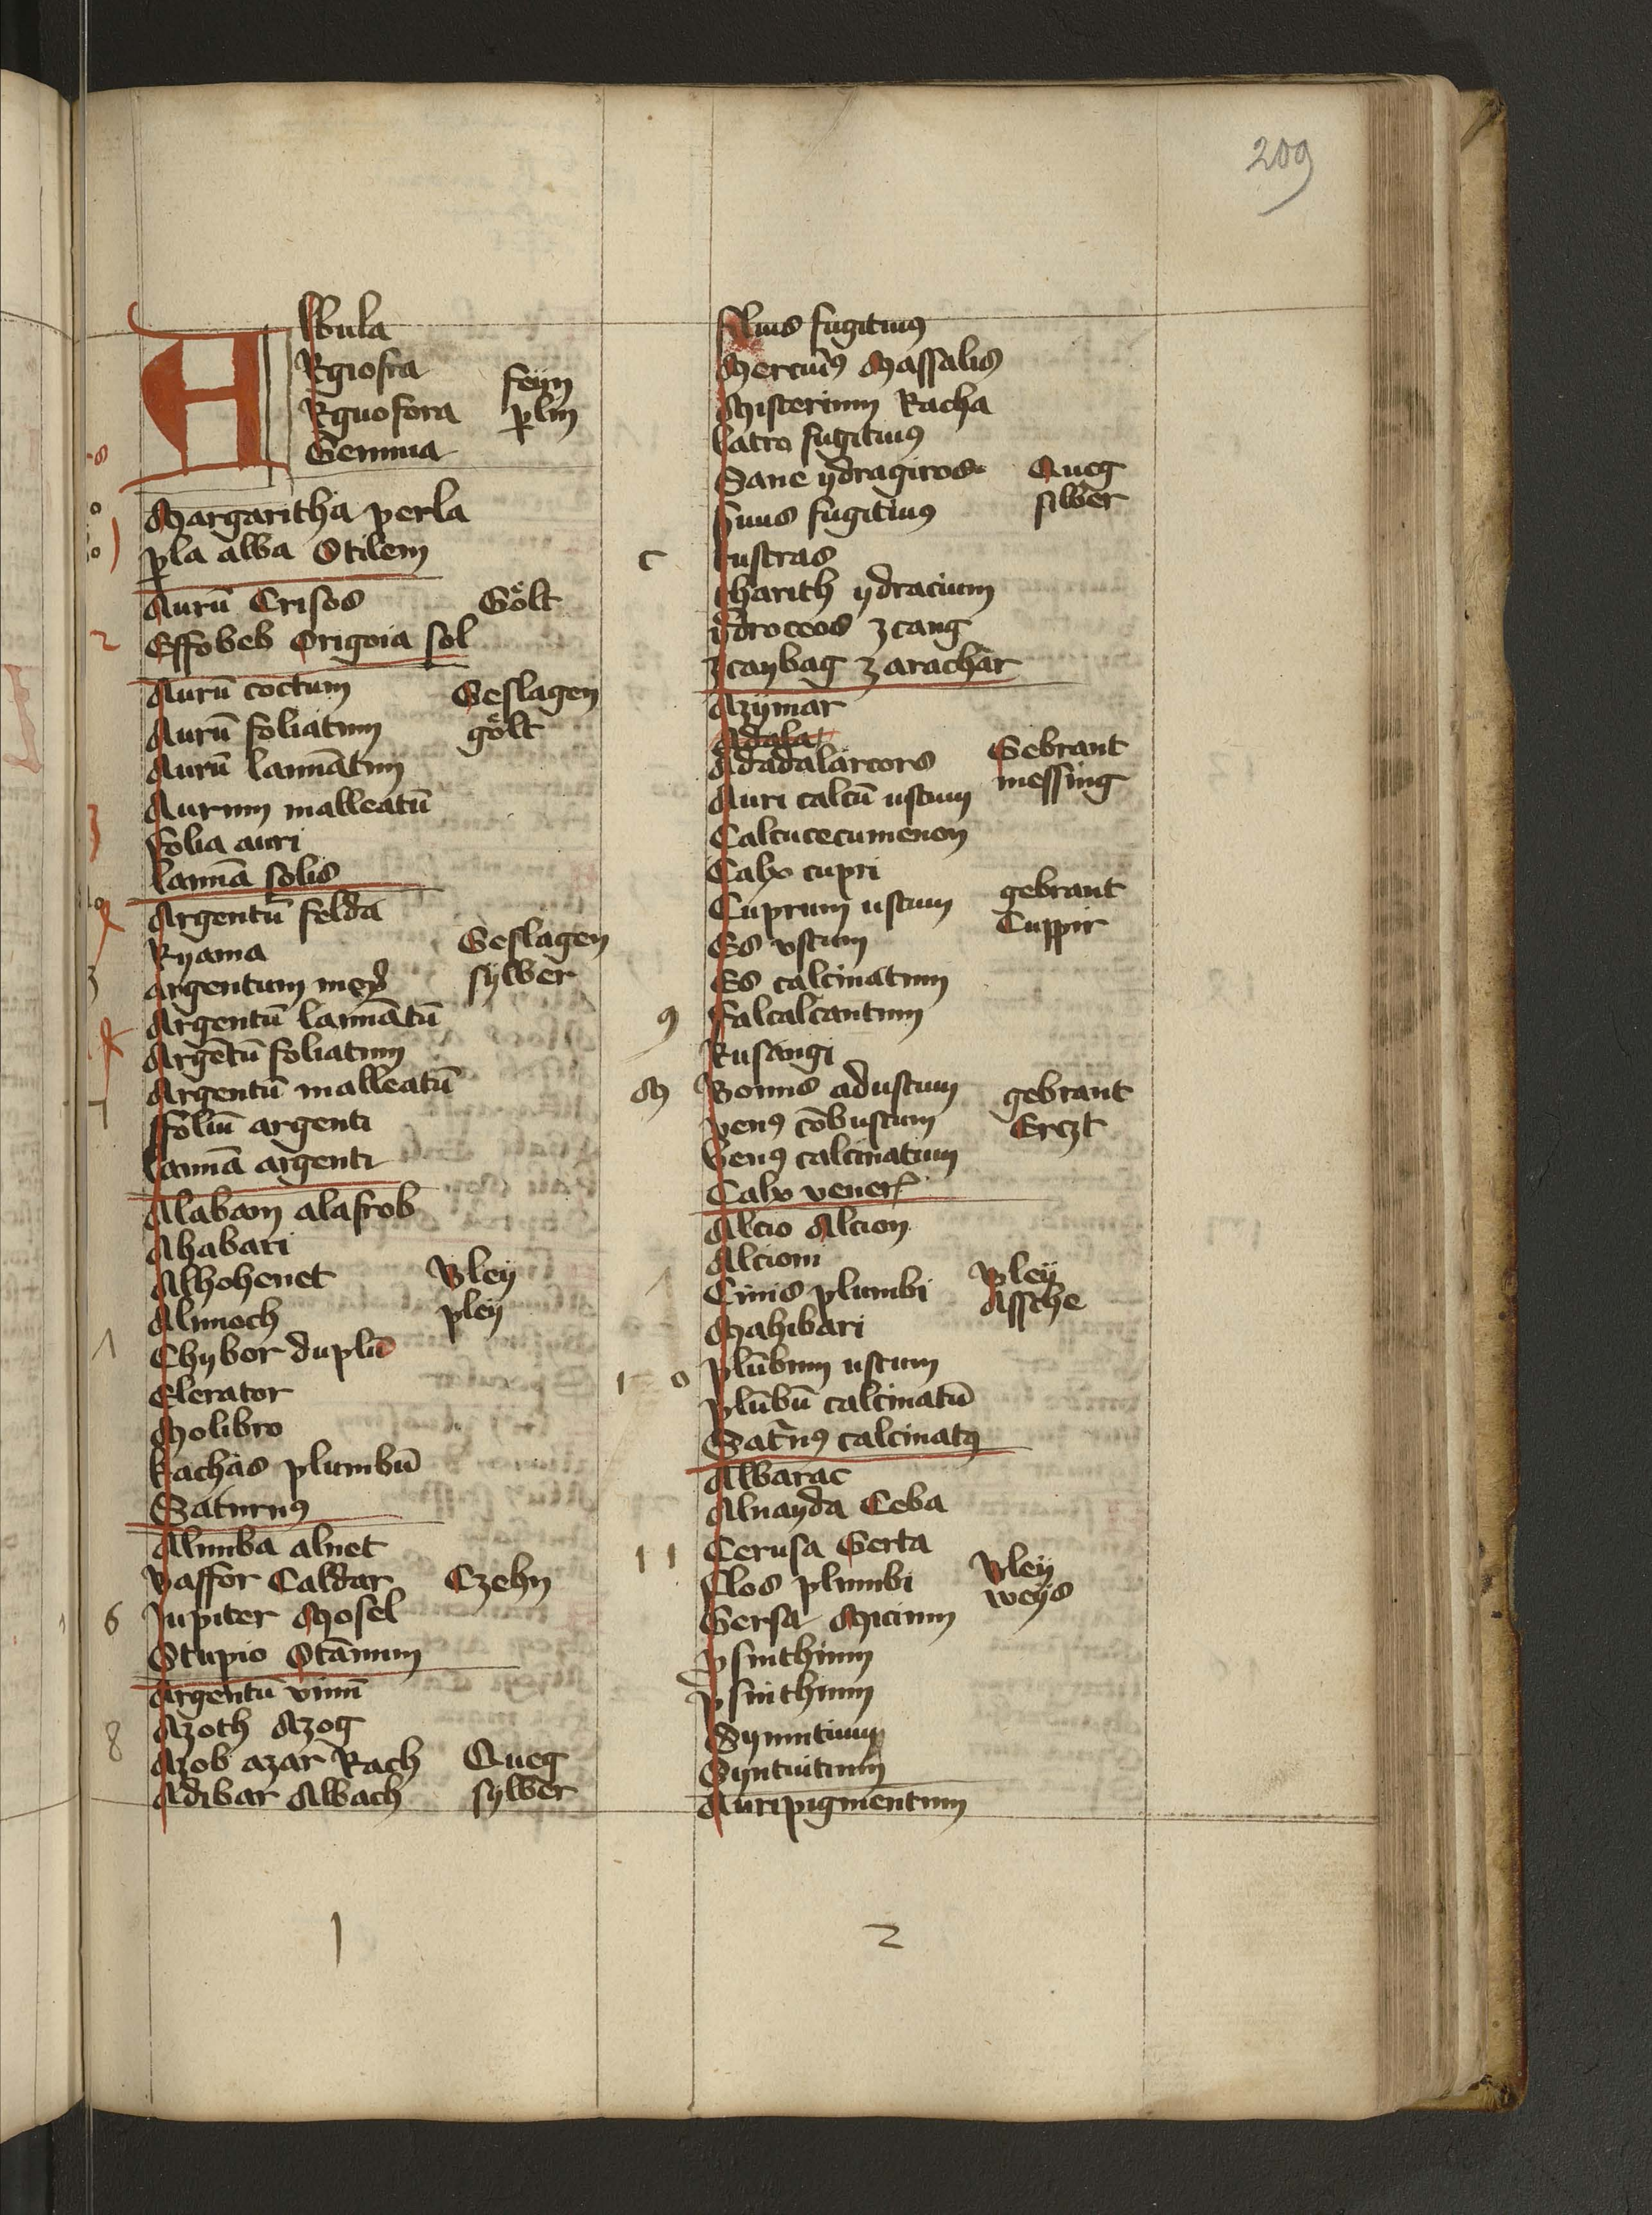 209
Albula
Argiosra feyn
Arguofora perlin
Gemma
Margaritha perla
perla alba Stilem
Aurū Crisos Gölt
2 Effobeb Origoia sol
Aurū coctum Geslagen
Aurū foliatum gölt
Aurū laminātum
Aurum malleatū
3 Folia auri
lamīa solis
Argentū felda
Ryama Geslagen
argentum sylber
Argentū lamīatū
Argētū foliatum
Argentū malleatū
ffoliū argenti
lamīa argenti
Alabam alasrob
Ahabari
Alhohenet Bley
Alimoch pley
Chybor duplū
Elerator
Molibro
Rachas plumbū
Saturnꝯ
Alumba alnet
Vaffor Caldar Czehn
6 Jupiter Mosel
Stupio Stāmum
Argentū vivū
8 Azoth Azog
Azob azar Rach Queg
Adibar Albach sylber
1
filius fugitivꝯ
Mercuriꝯ Massalis
Misterium Racha
latro fugitivꝯ
Sane ydragiros Queg
Suus fugitivꝯ silber
c custras
tharith ydracium
ydroceos zcang
zcaybag zarachar
Azymar
Adala
Adadalarcors Gebrant
Auri calcū ustum messing
Calcucecumenon
Calx cupri
Cuprum ustum gebrant
Es vstum Cuppir
Es calcinatum
9 Falcalcantum
Rusangi
M Vonus adustum gebrant
venꝯ cōbustum Erczt
Venꝯ calcinatum
Calx veneris
Alcio Alcion
Alcioni
Cinis plumbi Bley
Mahibari Assche
1 0 plūbum ustum
plūbū calcinatū
Saturnꝯ calcinatꝯ
Albarac
Alnayda Ceba
11 Cerusa Gerta
Flos plumbi Bley
Gersa Micinum weys
Psinthium
Psinthium
Symmtium
Syntuitium
Auripigmentum
2